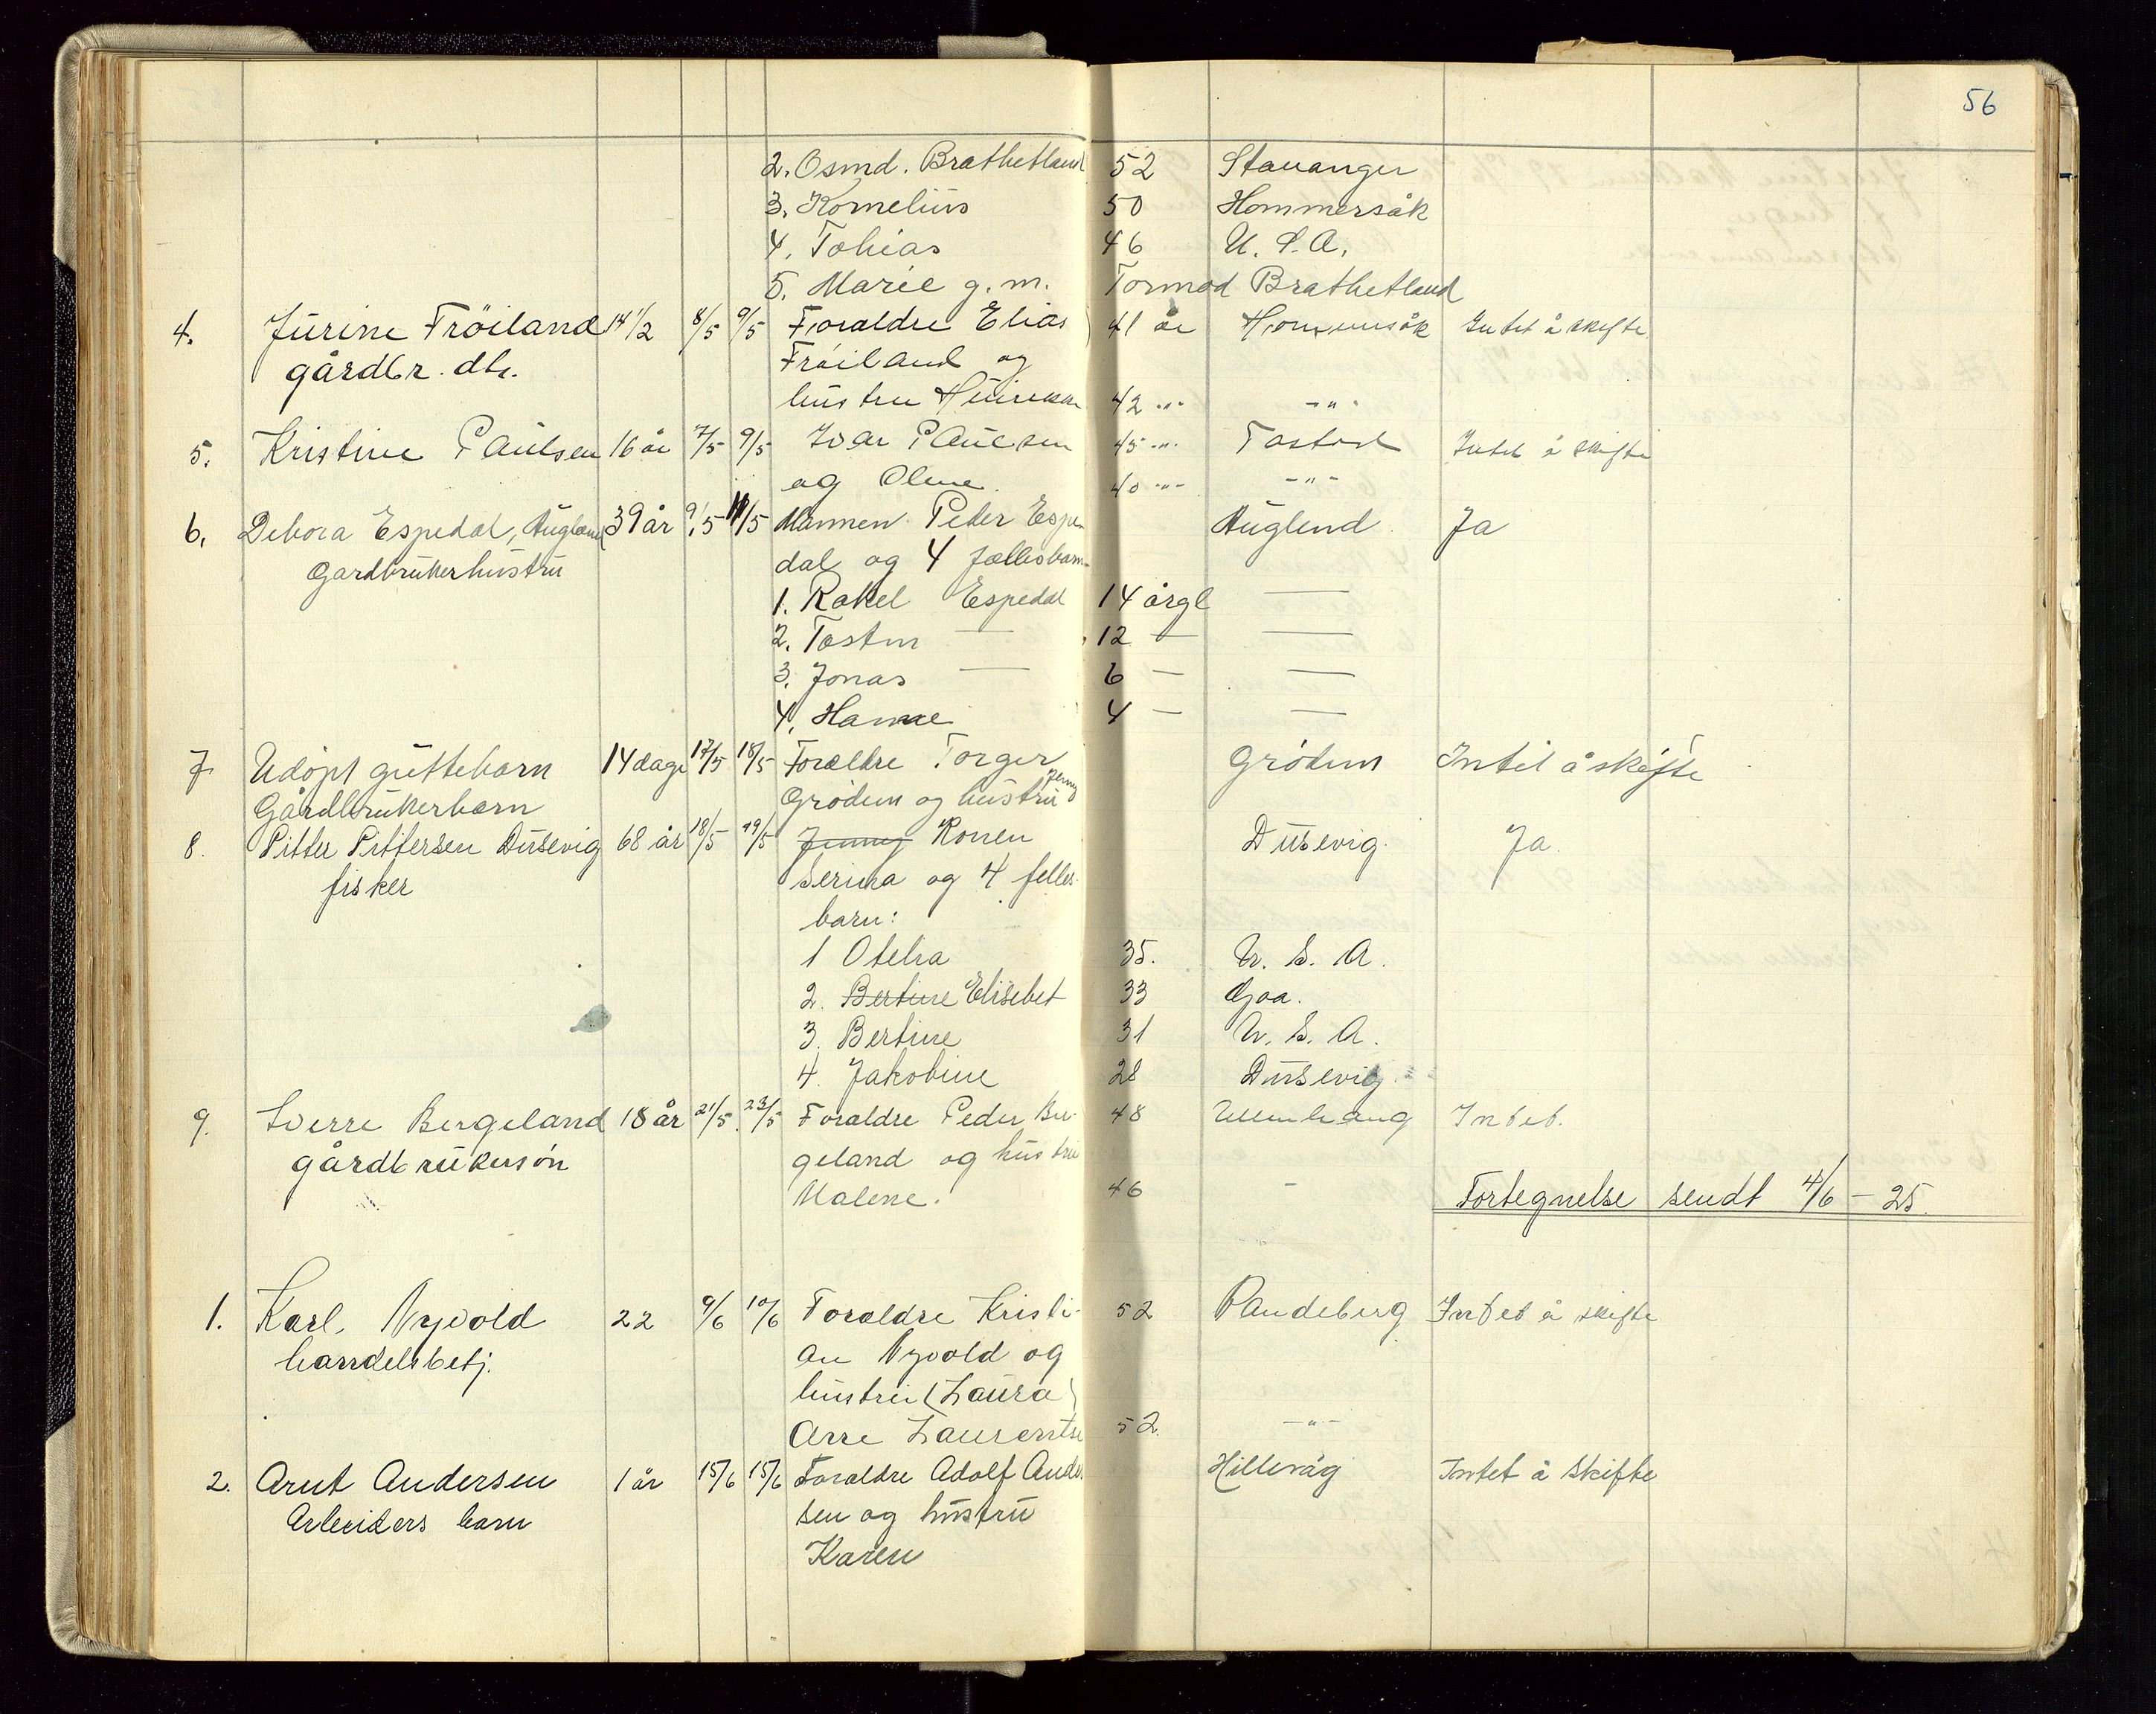 56
2. Osmd. Brathetland 52 Stavanger
3. Kornelius 50 Hommersåk
4. Tobias 46 U. S. A.
5. Marie g. m. Tormod Brathetland
4. Jurine Fröiland 14 1/2 8/5 9/5 Foraldre Elias 41 år Hommersåk Intet å skifte
gårdbr. dtr. Fröiland og
hustru 42 -"- -"-
5. Kristine Paulsen 16 år 7/5 9/5 Ivar Paulsen 45 -"- Tasta Intet å skifte
og Oline. 40 -"- -"-
6. Debora Espedal, Augland 39 år 9/5 11/5 Mannen Peder Espe- Auglend Ja
Gardbrukerhustru dal og 4 fællesbarn
1. Rakel Espedal 14 årgl —
2. Tostur — 12 — —
3. Jonas — 6 — —
4. Hanne 4 — —
7 Udöpt guttebarn 14 dage 17/5 18/5 Foreldre Torger Grödem Intet å skifte
Gårdbrukerbarn Grödem og hustru Jenny
8. Pitter Pittersen Dusevig 68 år 18/5 19/5 Jenny Konen Dusevig. Ja.
fisker Serina og 4 felles-
barn:
1 Otelia 35. U. S. A.
2. Bertine Elisebet 33 Goa.
3. Bertine 31 U. S. A.
4. Jakobine 28 Dusevig
9. Sverre Bergeland 18 år 21/5 23/5 Foraldre Peder Ber- 48 Ullenhaug Intet.
gårdbrukersön geland og hustru
Malene. 46 - Fortegnelse sendt 4/6 - 25.
1. Karl Nyvold 22 9/6 10/6 Foraldre Kristi- 52 Randeberg Intet å skifte
handelsbetj. an Nyvold og
hustru (Laura)
Arre 52. -"-
2. Arnt Andersen 1 år 15/6 15/6 Foraldre Adolf Ander Hillevåg Intet å skifte
Arbeiders barn sen og hustru
Karen